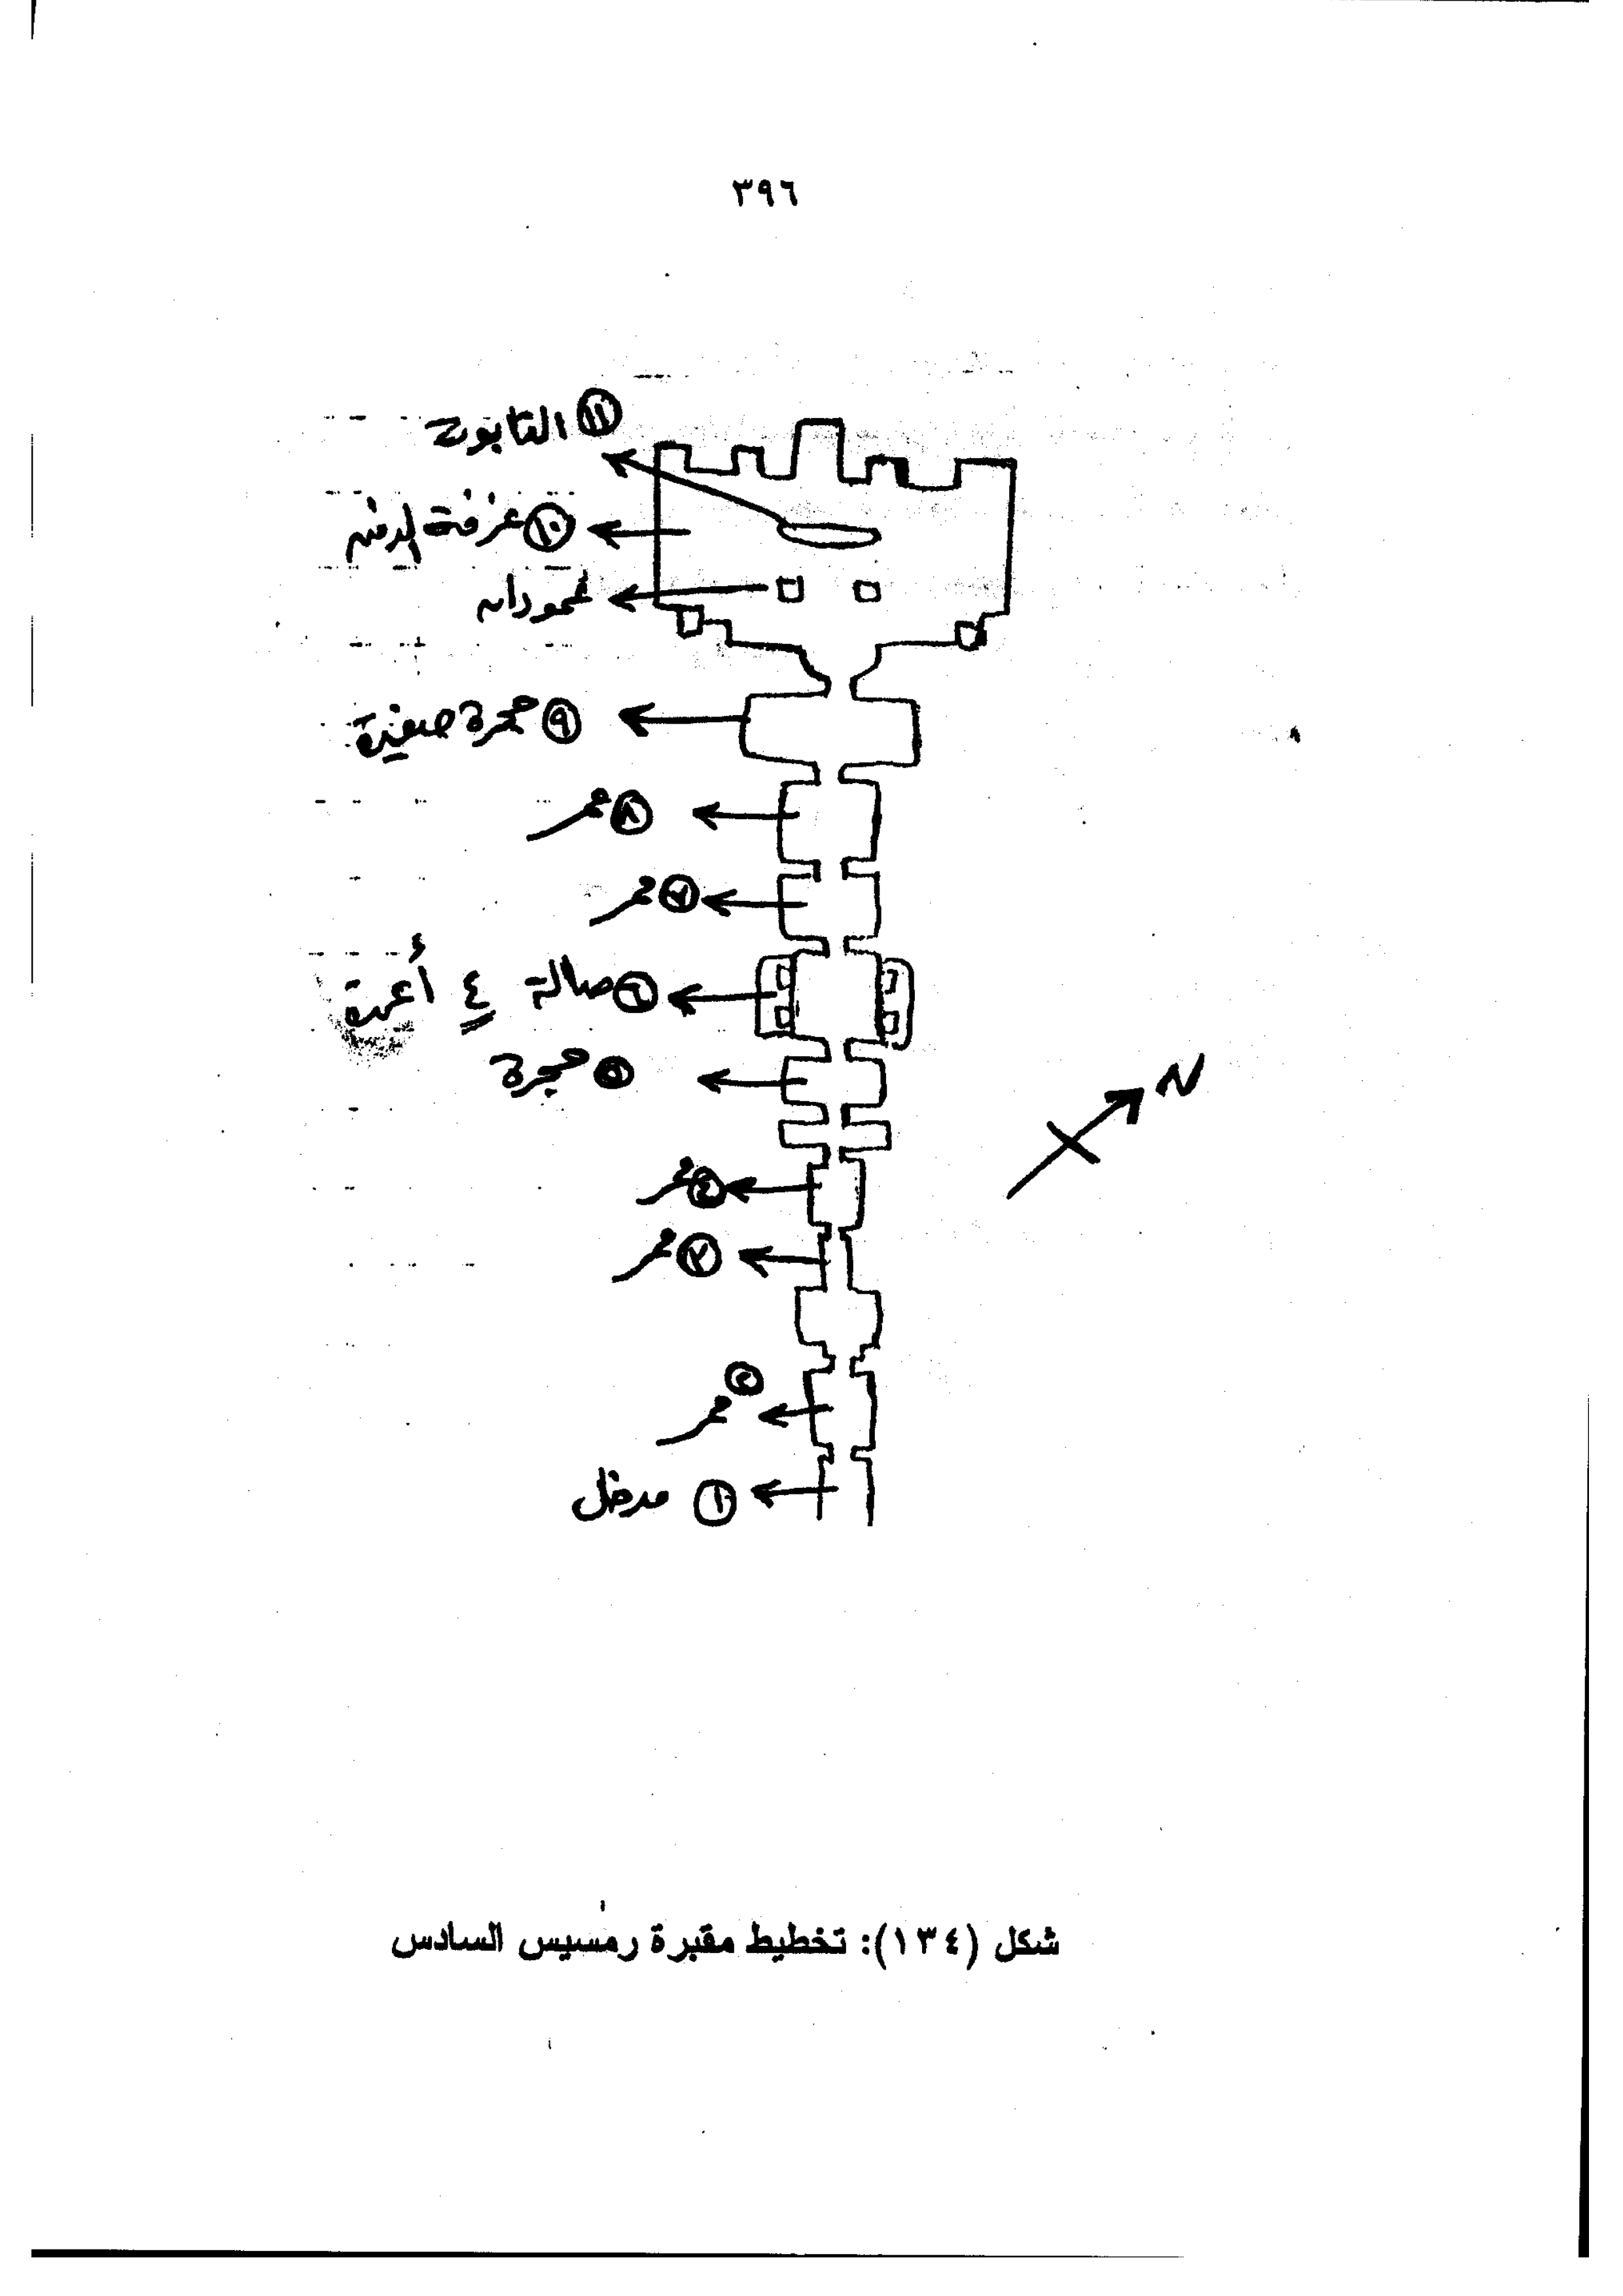 ٣٩٦
١١ التابوت
١٠ غرفة الدفن
عمودان
٩ حجرة صغيرة
٨ ممر
٧ ممر
٦ صالة ٤ أعمدة
٥ حجرة
٤ ممر
٧ ممر
٢ ممر
١ مدخل
N
شكل (١٣٤): تخطيط مقبرة رمسيس السادس